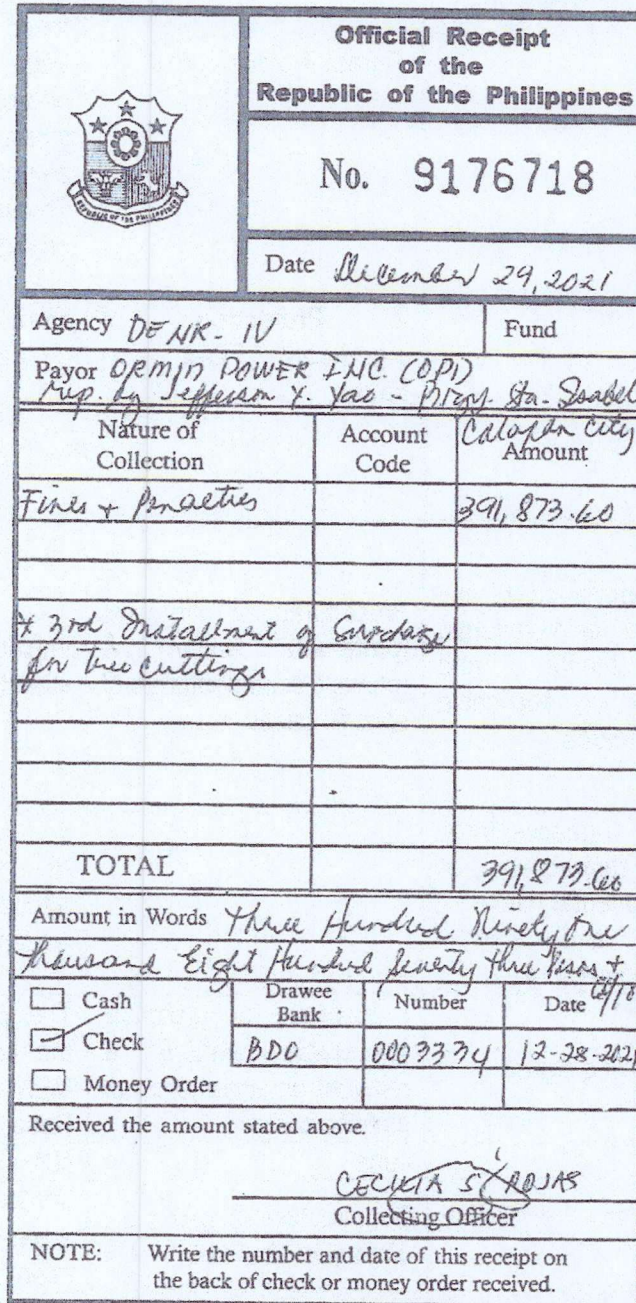 Official Receipt
of the
Republic of the Philippines
REPUBLIC OF THE PHILIPPINES
No. 9176718
Date December 29, 2021
Agency DENR - IV Fund
Payor ORMIN POWER INC. (OPI)
rep. by Jefferson Y. Yao - Brgy. Sta. Isabel
Calapan City
Nature of Collection Account Code Amount
Fines + Penalties 391,873.60
* 3rd Installment of Surcharge
for tree cuttings
TOTAL 391,873.60
Amount in Words Three Hundred Ninety One
Thousand Eight Hundred Seventy three Pesos +
Cash Drawee Bank Number Date
Check BDO 0003334 12-28-2021
Money Order
Received the amount stated above.
CECILIA S. ROJAS
Collecting Officer
NOTE: Write the number and date of this receipt on
the back of check or money order received.